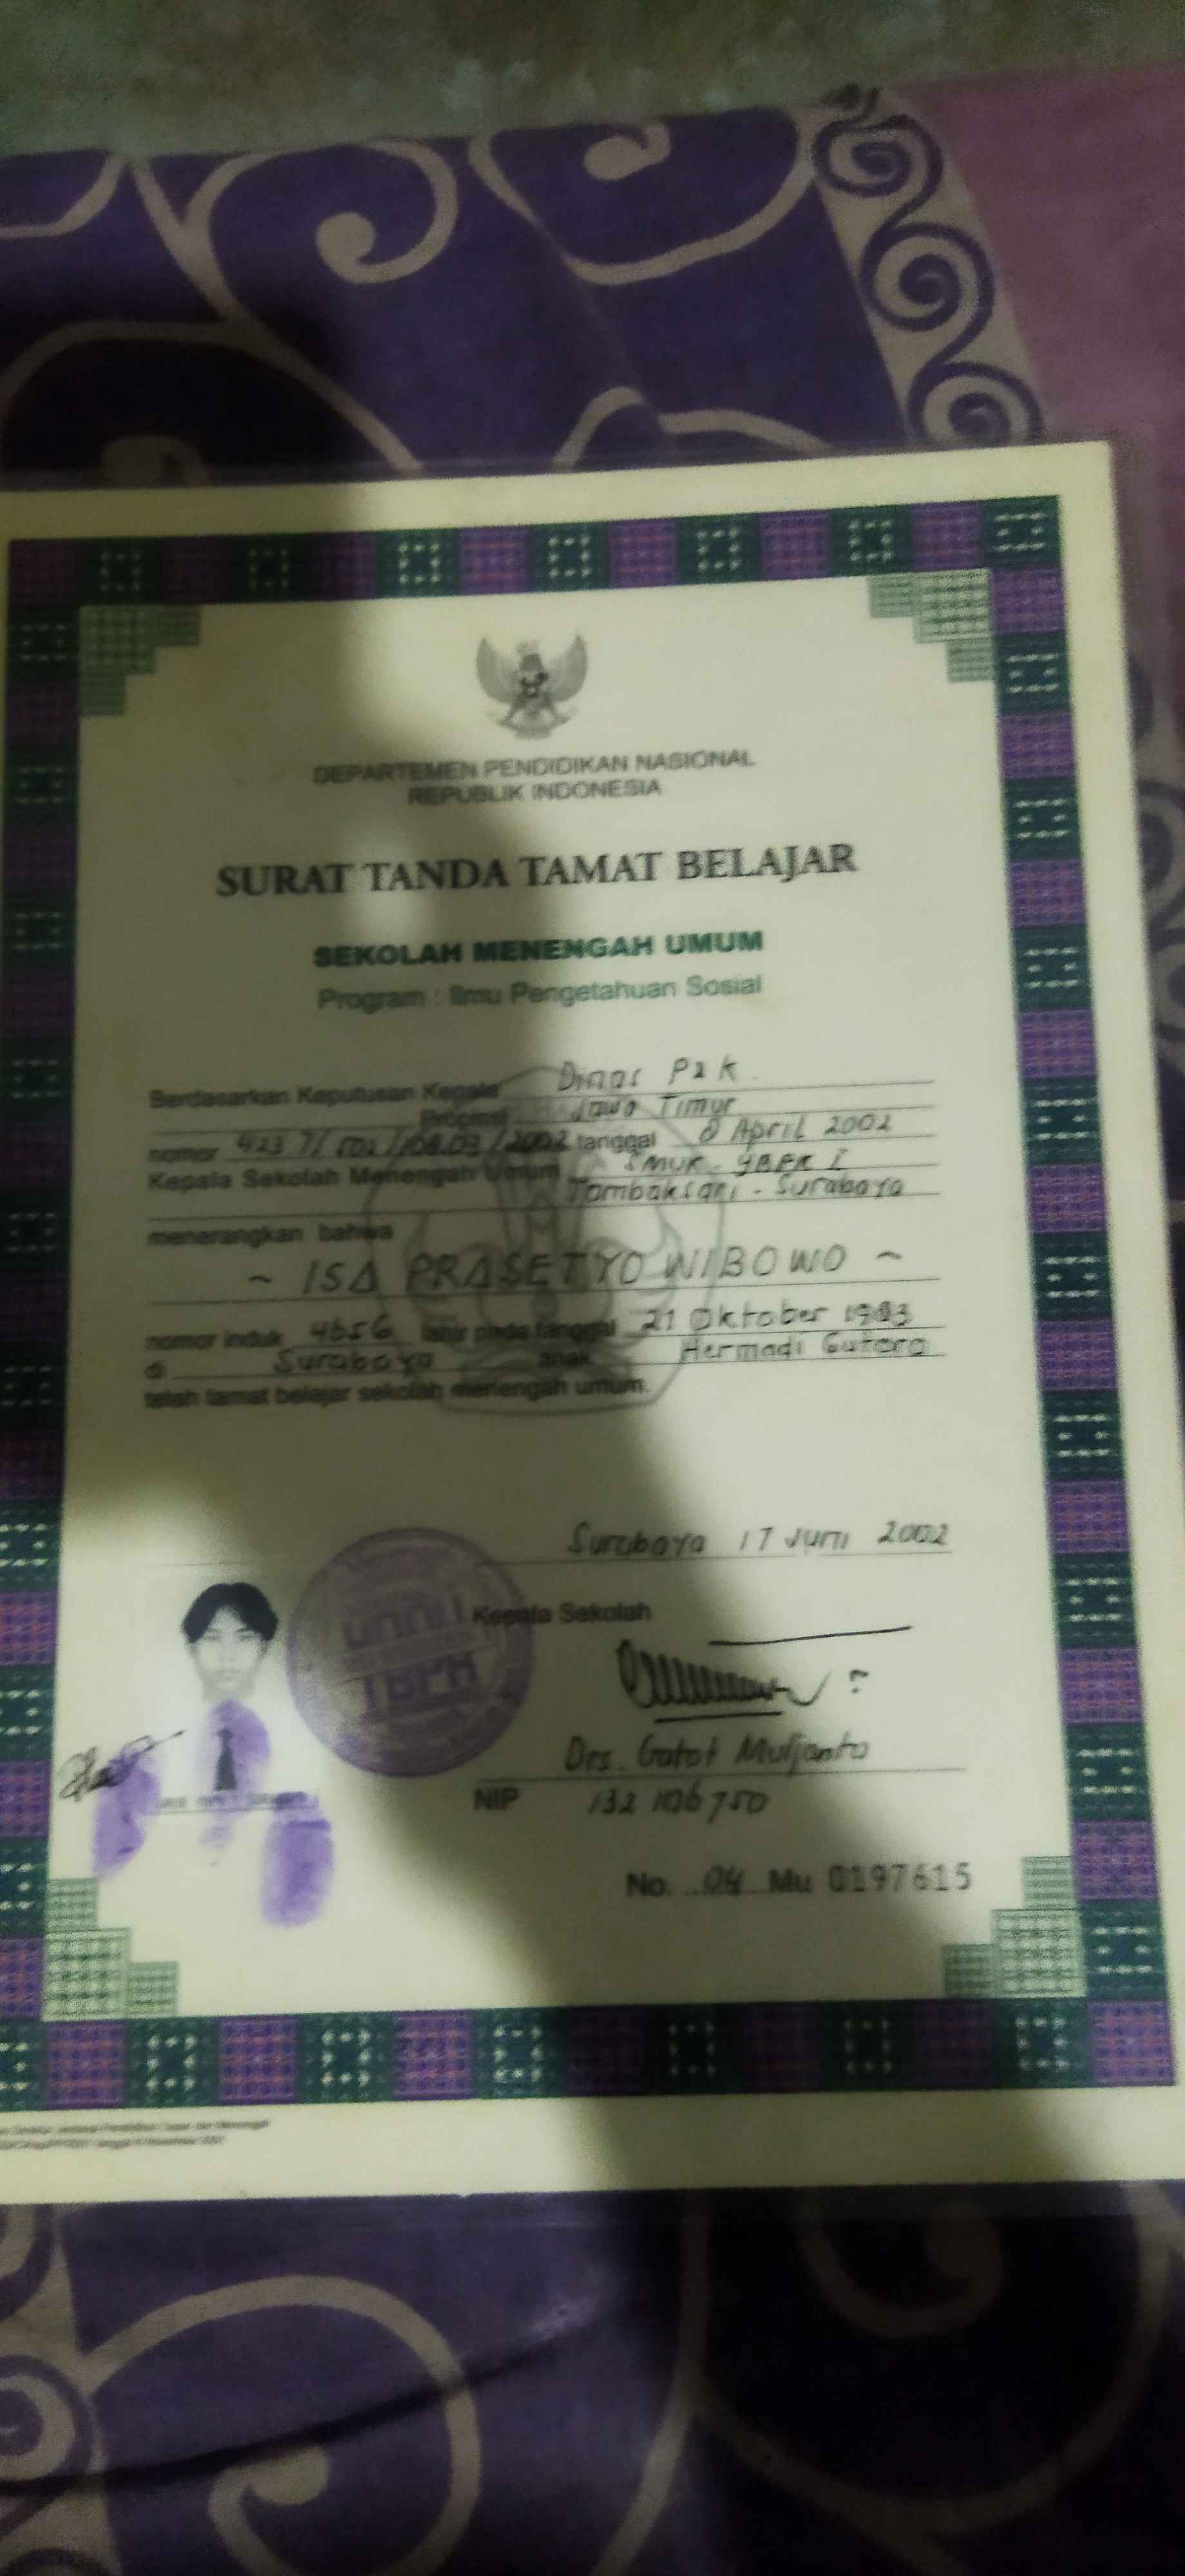 DEPARTEMEN PENDIDIKAN NASIONAL
REPUBLIK INDONESIA
SURAT TANDA TAMAT BELAJAR
SEKOLAH MENENGAH UMUM
Program : Ilmu Pengetahuan Sosial
Berdasarkan Keputusan Kepala Dinas P & K
Propinsi Jawa Timur
nomor tanggal 8 April 2002
Kepala Sekolah Menengah Umum SMUK. YBPK I
Tambaksari - Surabaya
menerangkan bahwa
~ ISA PRASETYO WIBOWO ~
nomor induk 4656 lahir pada tanggal 21 Oktober 1983
di Surabaya anak Hermadi
telah tamat belajar sekolah menengah umum.
Surabaya 17 Juni 2002
Kepala Sekolah
Drs. Gatot Muljanto
NIP 132 106 750
No. 04 Mu 0197615